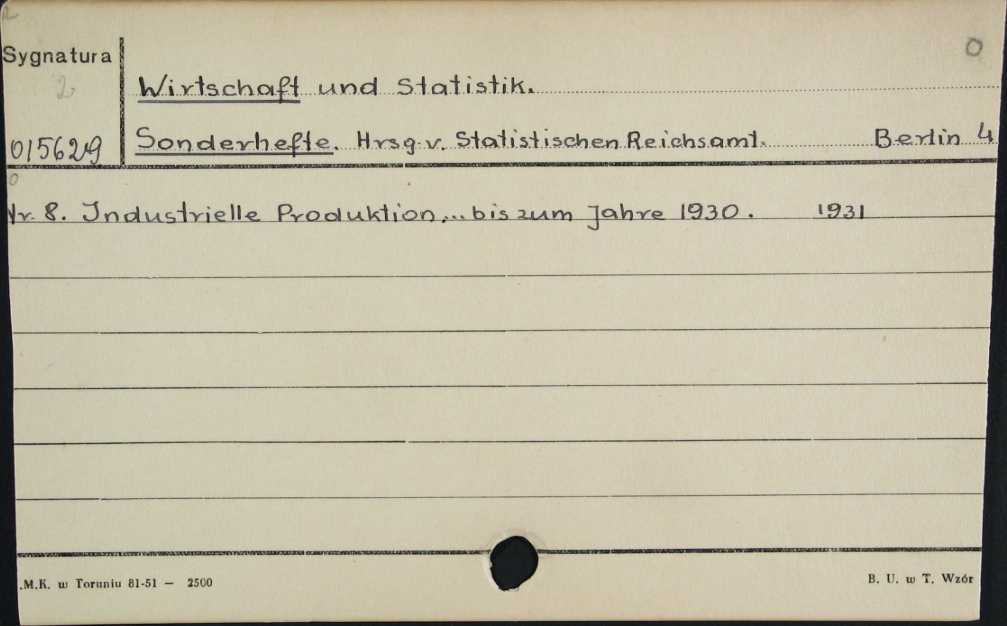 0
Sygnatura
2
Wirtschaft und Statistik.
015629
Sonderhefte. Hrsg. v. Statistischen Reichsamt. Berlin 4
0
Nr. 8. Industrielle Produktion,... bis zum Jahre 1930. 1931
.M.K. w Toruniu 81-51 — 2500
B. U. w T. Wzór